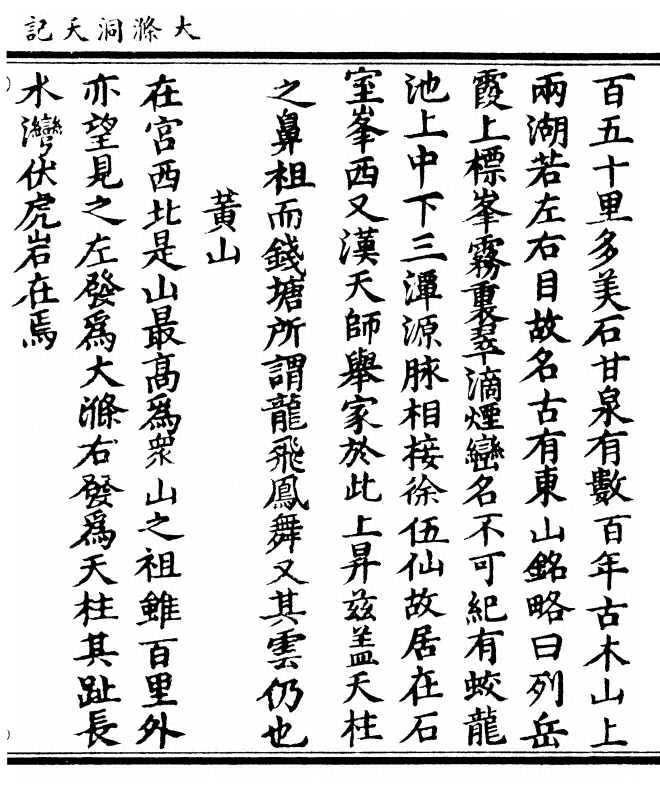 大滌洞天記
百五十里多美石甘泉有數百年古木山上
兩湖若左右目故名古有東山銘略曰列岳
霞上標峯霧裏翠滴煙巒名不可紀有蛟龍
池上中下三潭源脉相接徐伍仙故居在石
室峯西又漢天師舉家於此上昇兹盖天柱
之鼻祖而錢塘所謂龍飛鳳舞又其雲仍也
黃山
在宮西北是山最高爲衆山之祖雖百里外
亦望見之左發爲大滌右發爲天柱其趾長
水灣伏虎岩在焉